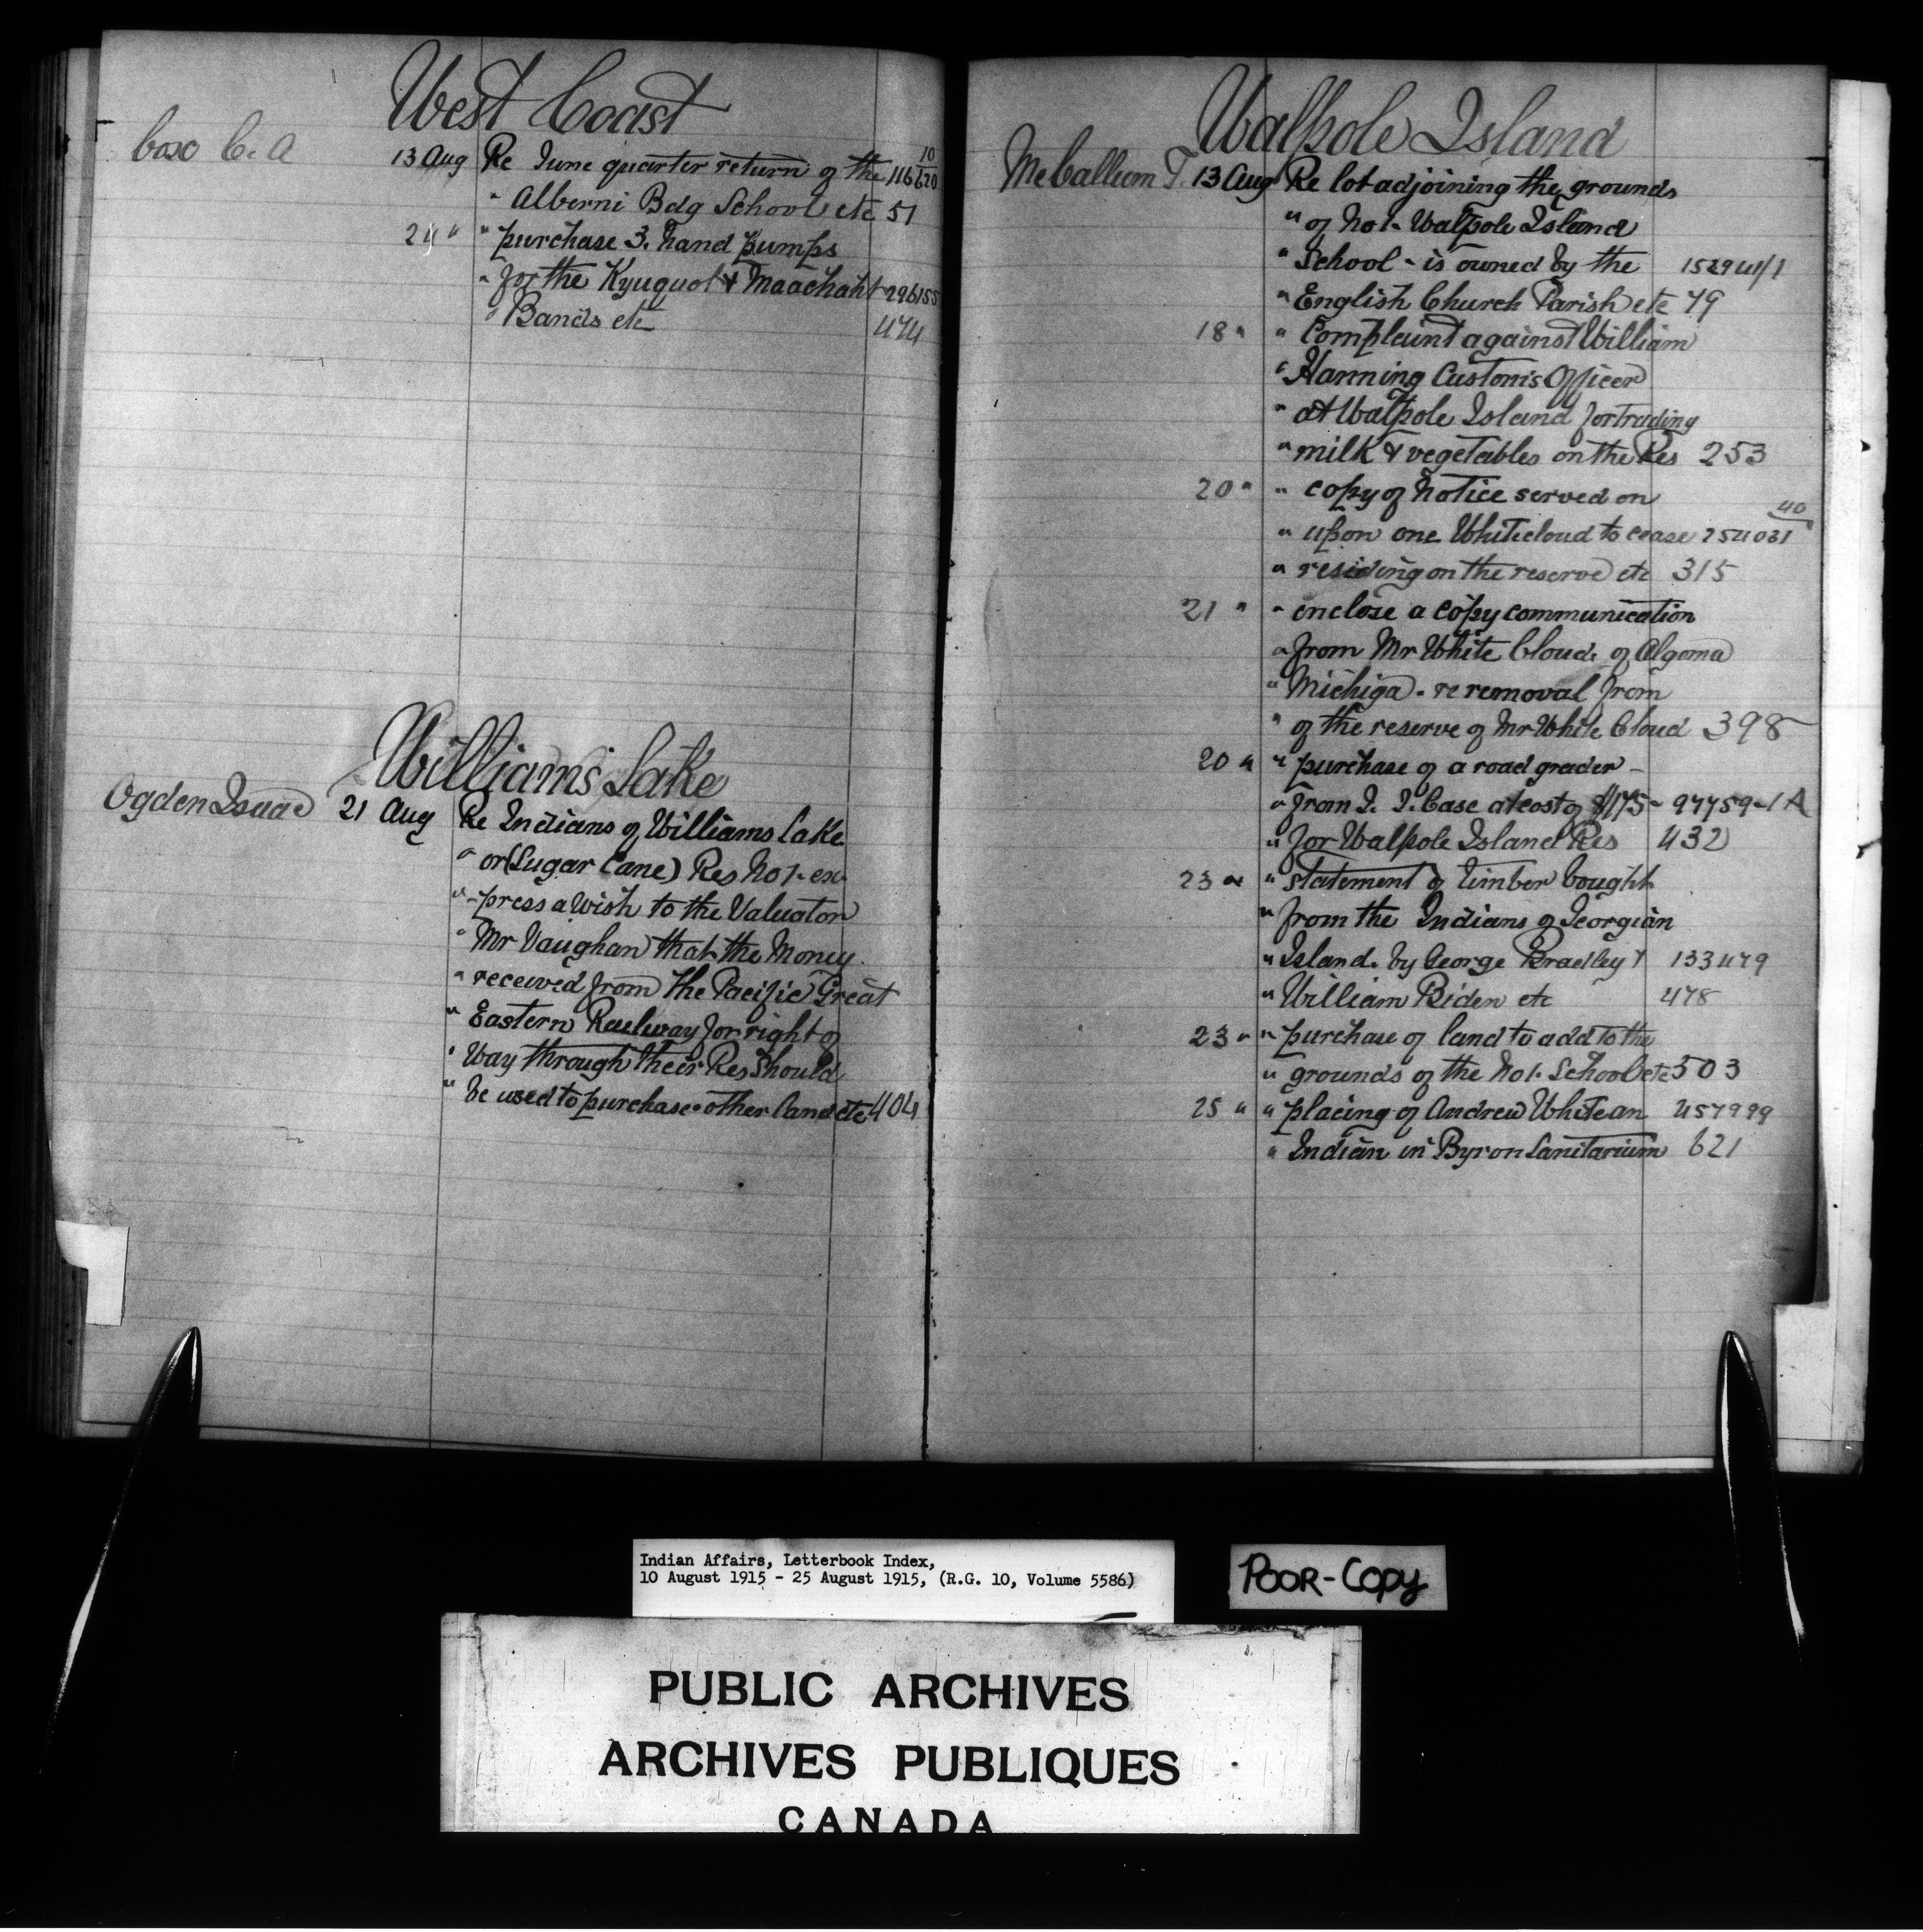 West Coast
Cox C. A 13 Aug Re June quarter return of the 116620 10
" Alberni Bdg School etc 51
24 " " purchase 3. hand pumps
" for the Kyuquot & Maachaht 296155
" Bands etc 474
Williams Lake
Ogden Isaac 21 Aug Re Indians of Williams Lake
" or (Sugar Cane) Res No 1- ex-
" -press a wish to the Valuator
" Mr Vaughan that the Money
" received from the Pacific Great
" Eastern Railway for right of
" Way through their Res Should
" be used to purchase other land etc 404
Walpole Island
McCallum T. 13 Aug Re lot adjoining the grounds
" of No 1- Walpole Island
" School - is owned by the 152941/1
" English Church Parish etc 49
18 " " Complaint against William
" Hanning Customs Officer
" at Walpole Island for trading
" milk & vegetables on the Res 253
20 " " copy of Notice served on
" upon one Whitecloud to cease 254031 40
" residing on the reserve etc 315
21 " " enclose a copy communication
" from Mr White Cloud of Algoma
" Michiga - re removal from
" of the reserve of Mr White Cloud 398
20 " " purchase of a road grader -
" from J. I. Case at cost of $175- 97759-1A
" for Walpole Island Res 432
23 " " statement of timber bought
" from the Indians of Georgian
" Island. by George Bradley & 133479
" William Biden etc 478
23 " " purchase of land to add to the
" grounds of the No 1. School etc 503
25 " " placing of Andrew White an 457999
" Indian in Byron Sanitarium 621
Indian Affairs, Letterbook Index,
10 August 1915 - 25 August 1915, (R.G. 10, Volume 5586)
POOR-COPY
PUBLIC ARCHIVES
ARCHIVES PUBLIQUES
CANADA